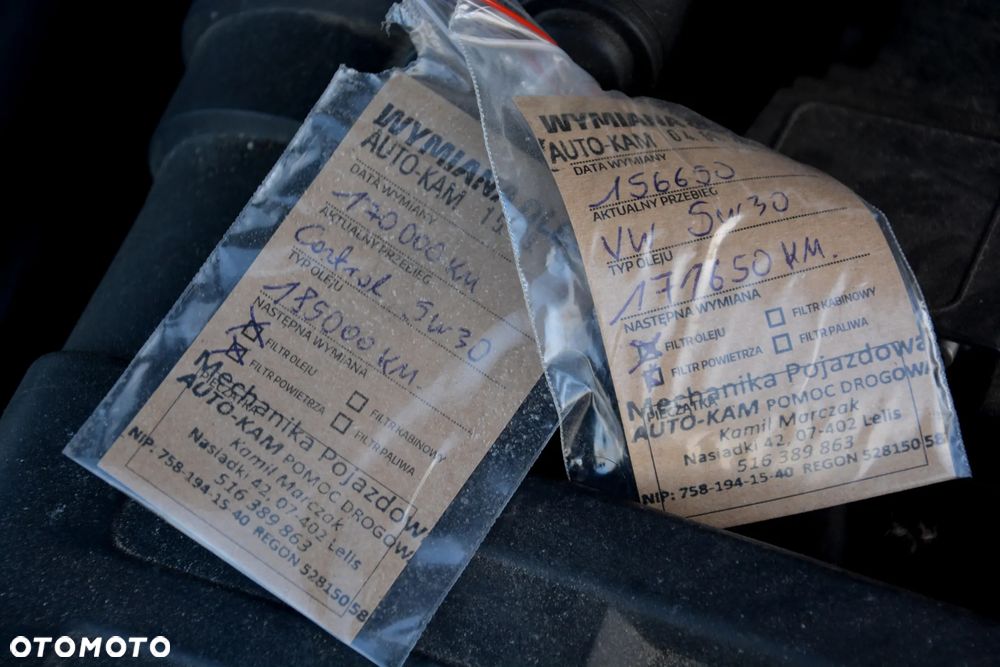 WYMIANA
AUTO-KAM
DATA WYMIANY
170 000 KM
AKTUALNY PRZEBIEG
Castrol 5w30
TYP OLEJU
185000 KM.
NASTĘPNA WYMIANA
FILTR OLEJU
FILTR KABINOWY
FILTR POWIETRZA
FILTR PALIWA
PIECZĄTKA
Mechanika Pojazdow
AUTO-KAM POMOC DROGOW
Kamil Marczak
Nasiadki 42, 07-402 Lelis
516 389 863
NIP: 758-194-15-40 REGON 528150 58
WYMIANA
AUTO-KAM
DATA WYMIANY
156650
AKTUALNY PRZEBIEG
VW 5w30
TYP OLEJU
171650 KM.
NASTĘPNA WYMIANA
FILTR OLEJU
FILTR KABINOWY
FILTR POWIETRZA
FILTR PALIWA
PIECZĄTKA
Mechanika Pojazdowa
AUTO-KAM POMOC DROGOWA
Kamil Marczak
Nasiadki 42, 07-402 Lelis
516 389 863
NIP: 758-194-15-40 REGON 528150 58
OTOMOTO